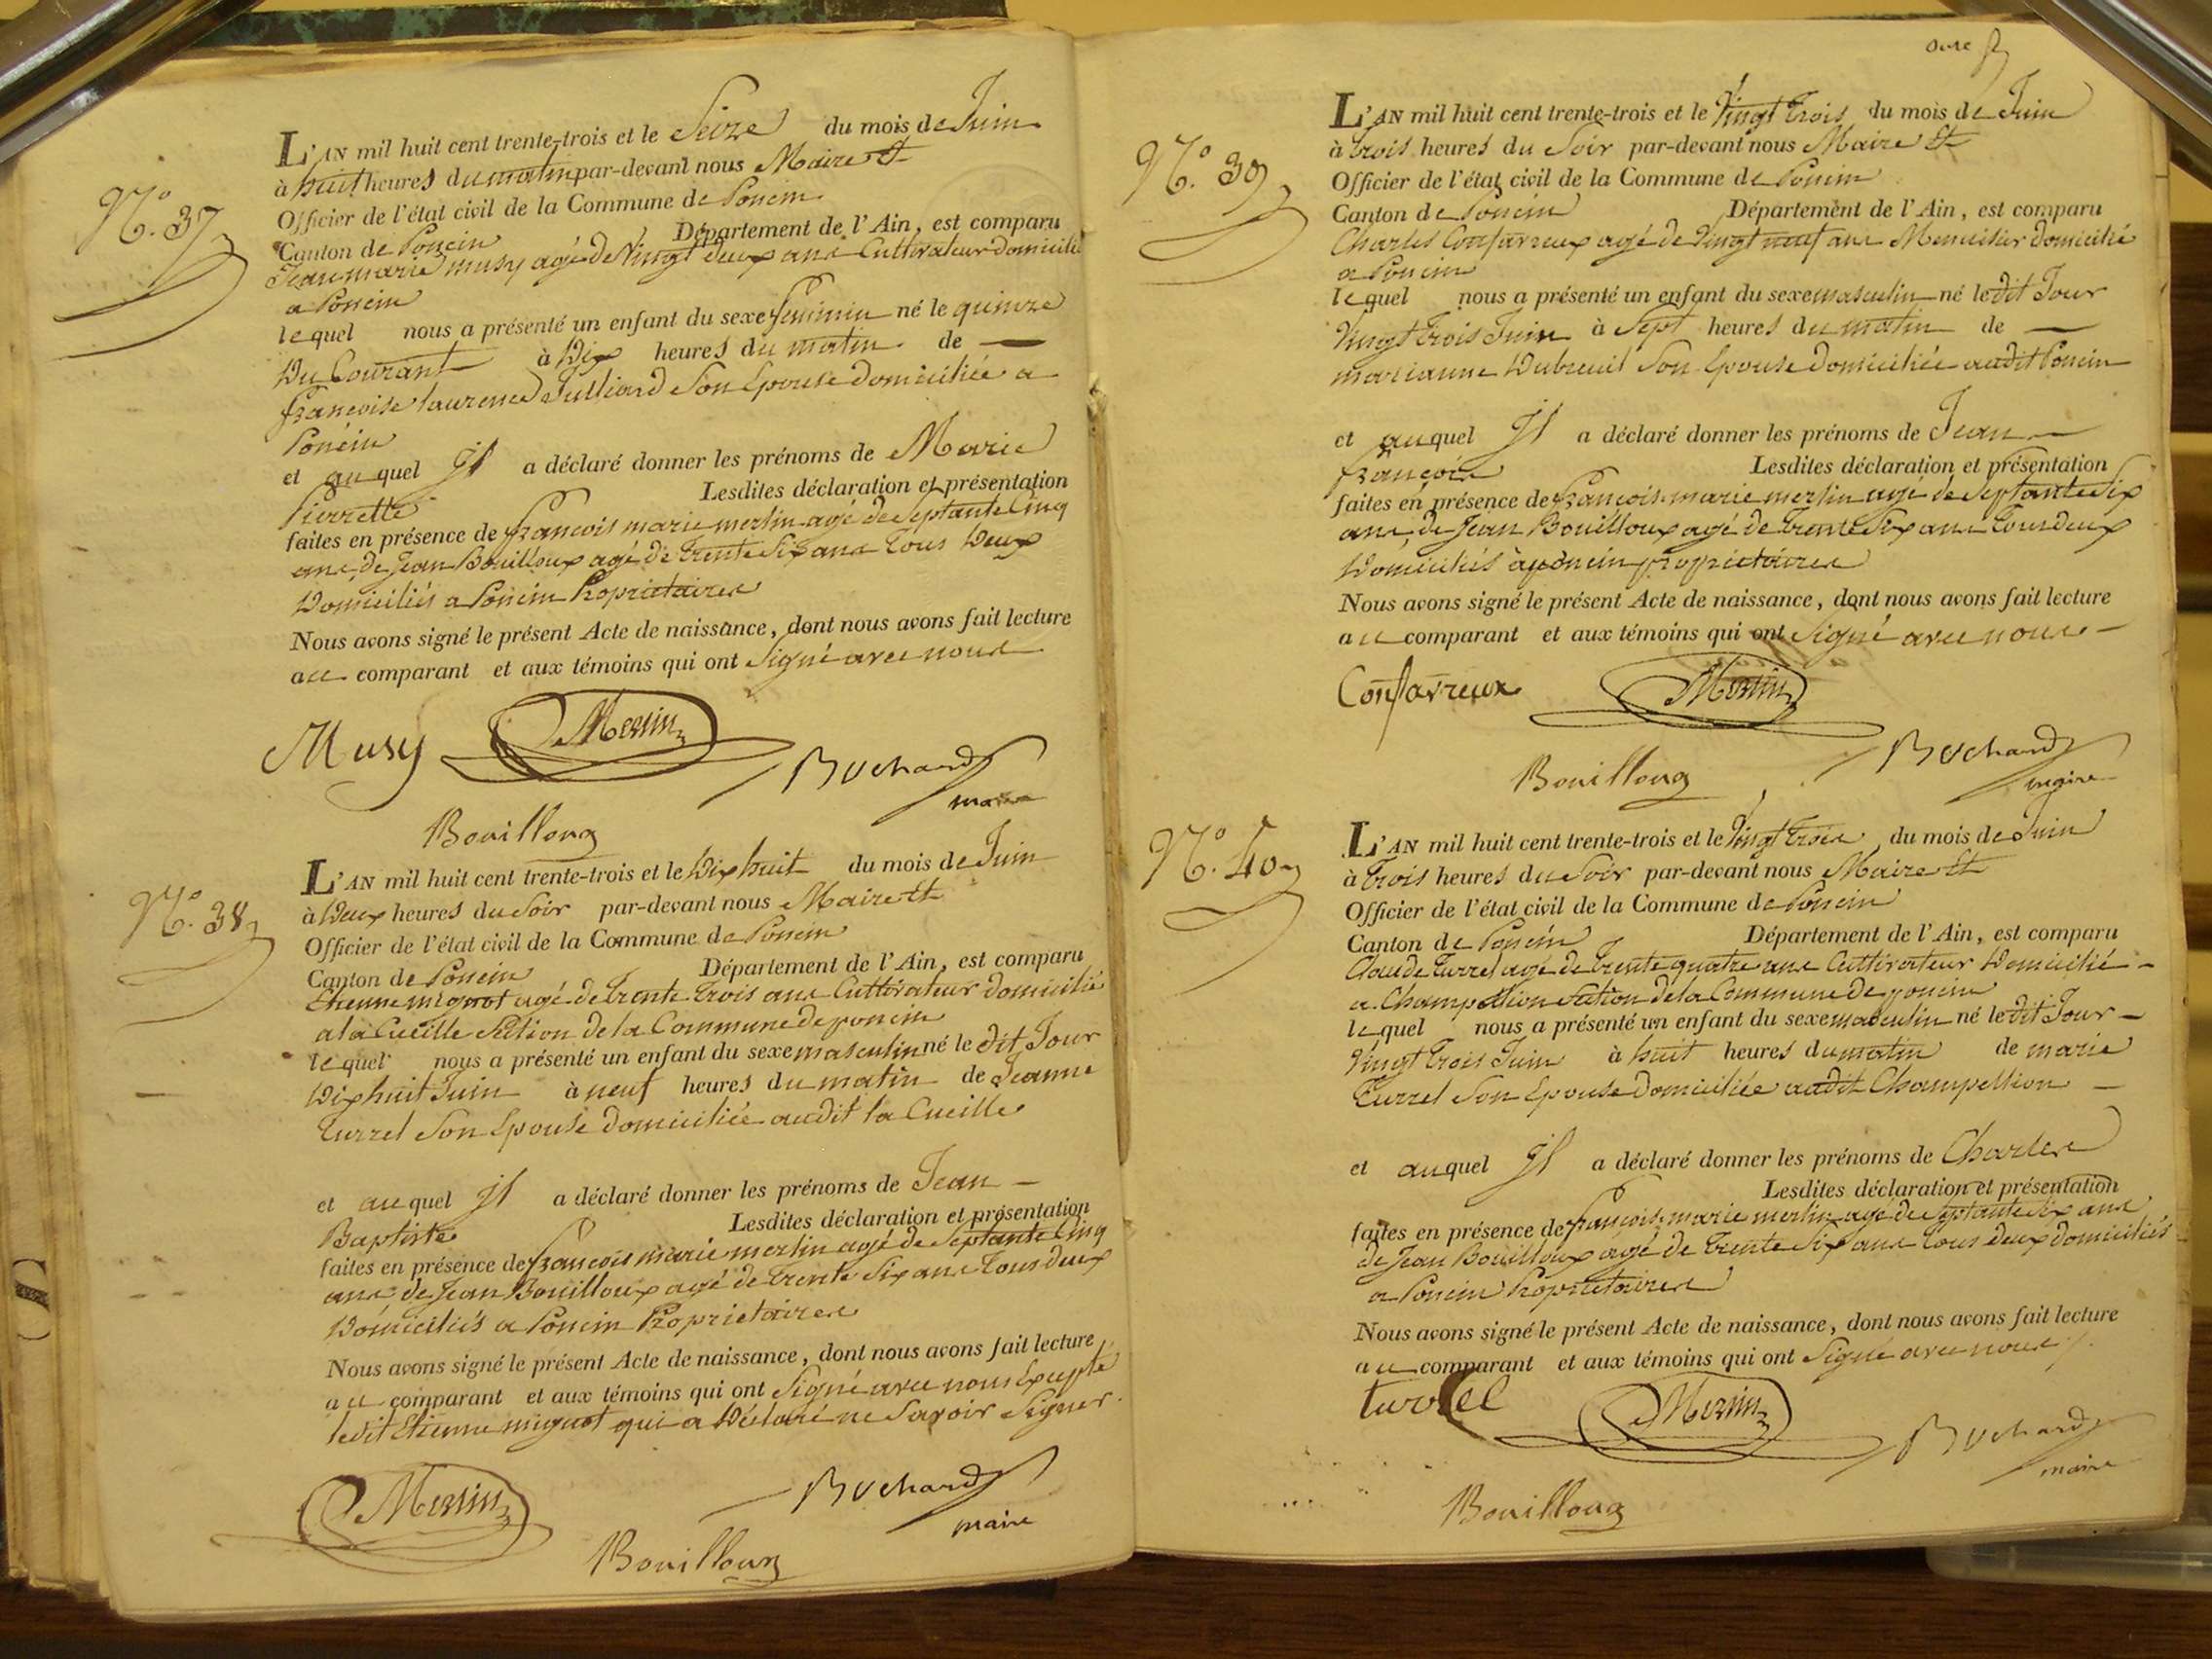 N.o 37
L'AN mil huit cent trente-trois et le Seize du mois de Juin
à huit heures du matin par-devant nous Maire et
Officier de l'état civil de la Commune de Poncin
Canton de Poncin Département de l'Ain, est comparu
Jean marie musy agé de Vingt deux ans Cultivateur domicilié
a Poncin
lequel nous a présenté un enfant du sexe feminin né le quinze
Du Courant à Dix heures du matin de
françoise laurence Julliard Son Epouse domiciliée a
Poncin
et auquel Il a déclaré donner les prénoms de Marie
Pierrette Lesdites déclaration et présentation
faites en présence de françois marie merlin agé de Septante Cinq
ans, de Jean Bouilloux agé de trente Six ans tous Deux
Domiciliés a Poncin Propriétaires
Nous avons signé le présent Acte de naissance, dont nous avons fait lecture
au comparant et aux témoins qui ont Signé avec nous
Musy Merlin Bochard
maire
Bouilloux
N.o 38
L'AN mil huit cent trente-trois et le Dix huit du mois de Juin
à Deux heures du Soir par-devant nous Maire et
Officier de l'état civil de la Commune de Poncin
Canton de Poncin Département de l'Ain, est comparu
Etienne mignot agé de trente trois ans Cultivateur domicilié
a la Cueille Section de la Commune de poncin
lequel nous a présenté un enfant du sexe masculin né le dit Jour
Dix huit Juin à neuf heures du matin de Jeanne
Turrel Son Epouse domiciliée audit la Cueille
et auquel Il a déclaré donner les prénoms de Jean
Baptiste Lesdites déclaration et présentation
faites en présence de françois marie merlin agé de Septante Cinq
ans de Jean Bouilloux agé de trente Six ans tous deux
Domiciliés a Poncin Propriétaires
Nous avons signé le présent Acte de naissance, dont nous avons fait lecture
au comparant et aux témoins qui ont Signé avec nous Excepté
ledit Etienne mignot qui a Déclaré ne Savoir Signer.
Merlin Bochard
maire
Bouilloux
N.o 39
L'AN mil huit cent trente-trois et le Vingt trois du mois de Juin
à trois heures du Soir par-devant nous Maire et
Officier de l'état civil de la Commune de Poncin
Canton de Poncin Département de l'Ain, est comparu
Charles Confavreux agé de Vingt neuf ans Menuisier domicilié
a Poncin
lequel nous a présenté un enfant du sexe masculin né le dit Jour
Vingt trois Juin à Sept heures du matin de
marianne Dubreuil Son Epouse domiciliée audit Poncin
et auquel Il a déclaré donner les prénoms de Jean
françois Lesdites déclaration et présentation
faites en présence de françois marie merlin agé de Septante Six
ans, de Jean Bouilloux agé de trente Six ans tous deux
Domiciliés à poncin propriétaires
Nous avons signé le présent Acte de naissance, dont nous avons fait lecture
au comparant et aux témoins qui ont Signé avec nous
Confavreux Merlin
Bochard
maire
Bouilloux
N.o 40
L'AN mil huit cent trente-trois et le Vingt trois du mois de Juin
à trois heures du Soir par-devant nous Maire et
Officier de l'état civil de la Commune de Poncin
Canton de Poncin Département de l'Ain, est comparu
Claude Turrel agé de trente quatre ans Cultivateur Domicilié
a Champeillion Section de la Commune de poncin
lequel nous a présenté un enfant du sexe masculin né le dit Jour
Vingt trois Juin à huit heures du matin de marie
Turrel Son Epouse domiciliée audit Champellion
et auquel Il a déclaré donner les prénoms de Charles
Lesdites déclaration et présentation
faites en présence de françois marie merlin agé de Septante Six ans
de Jean Bouilloux agé de trente Six ans tous deux domiciliés
a Poncin Propriétaires
Nous avons signé le présent Acte de naissance, dont nous avons fait lecture
au comparant et aux témoins qui ont Signé avec nous
turrel Merlin
Bochard
maire
Bouilloux